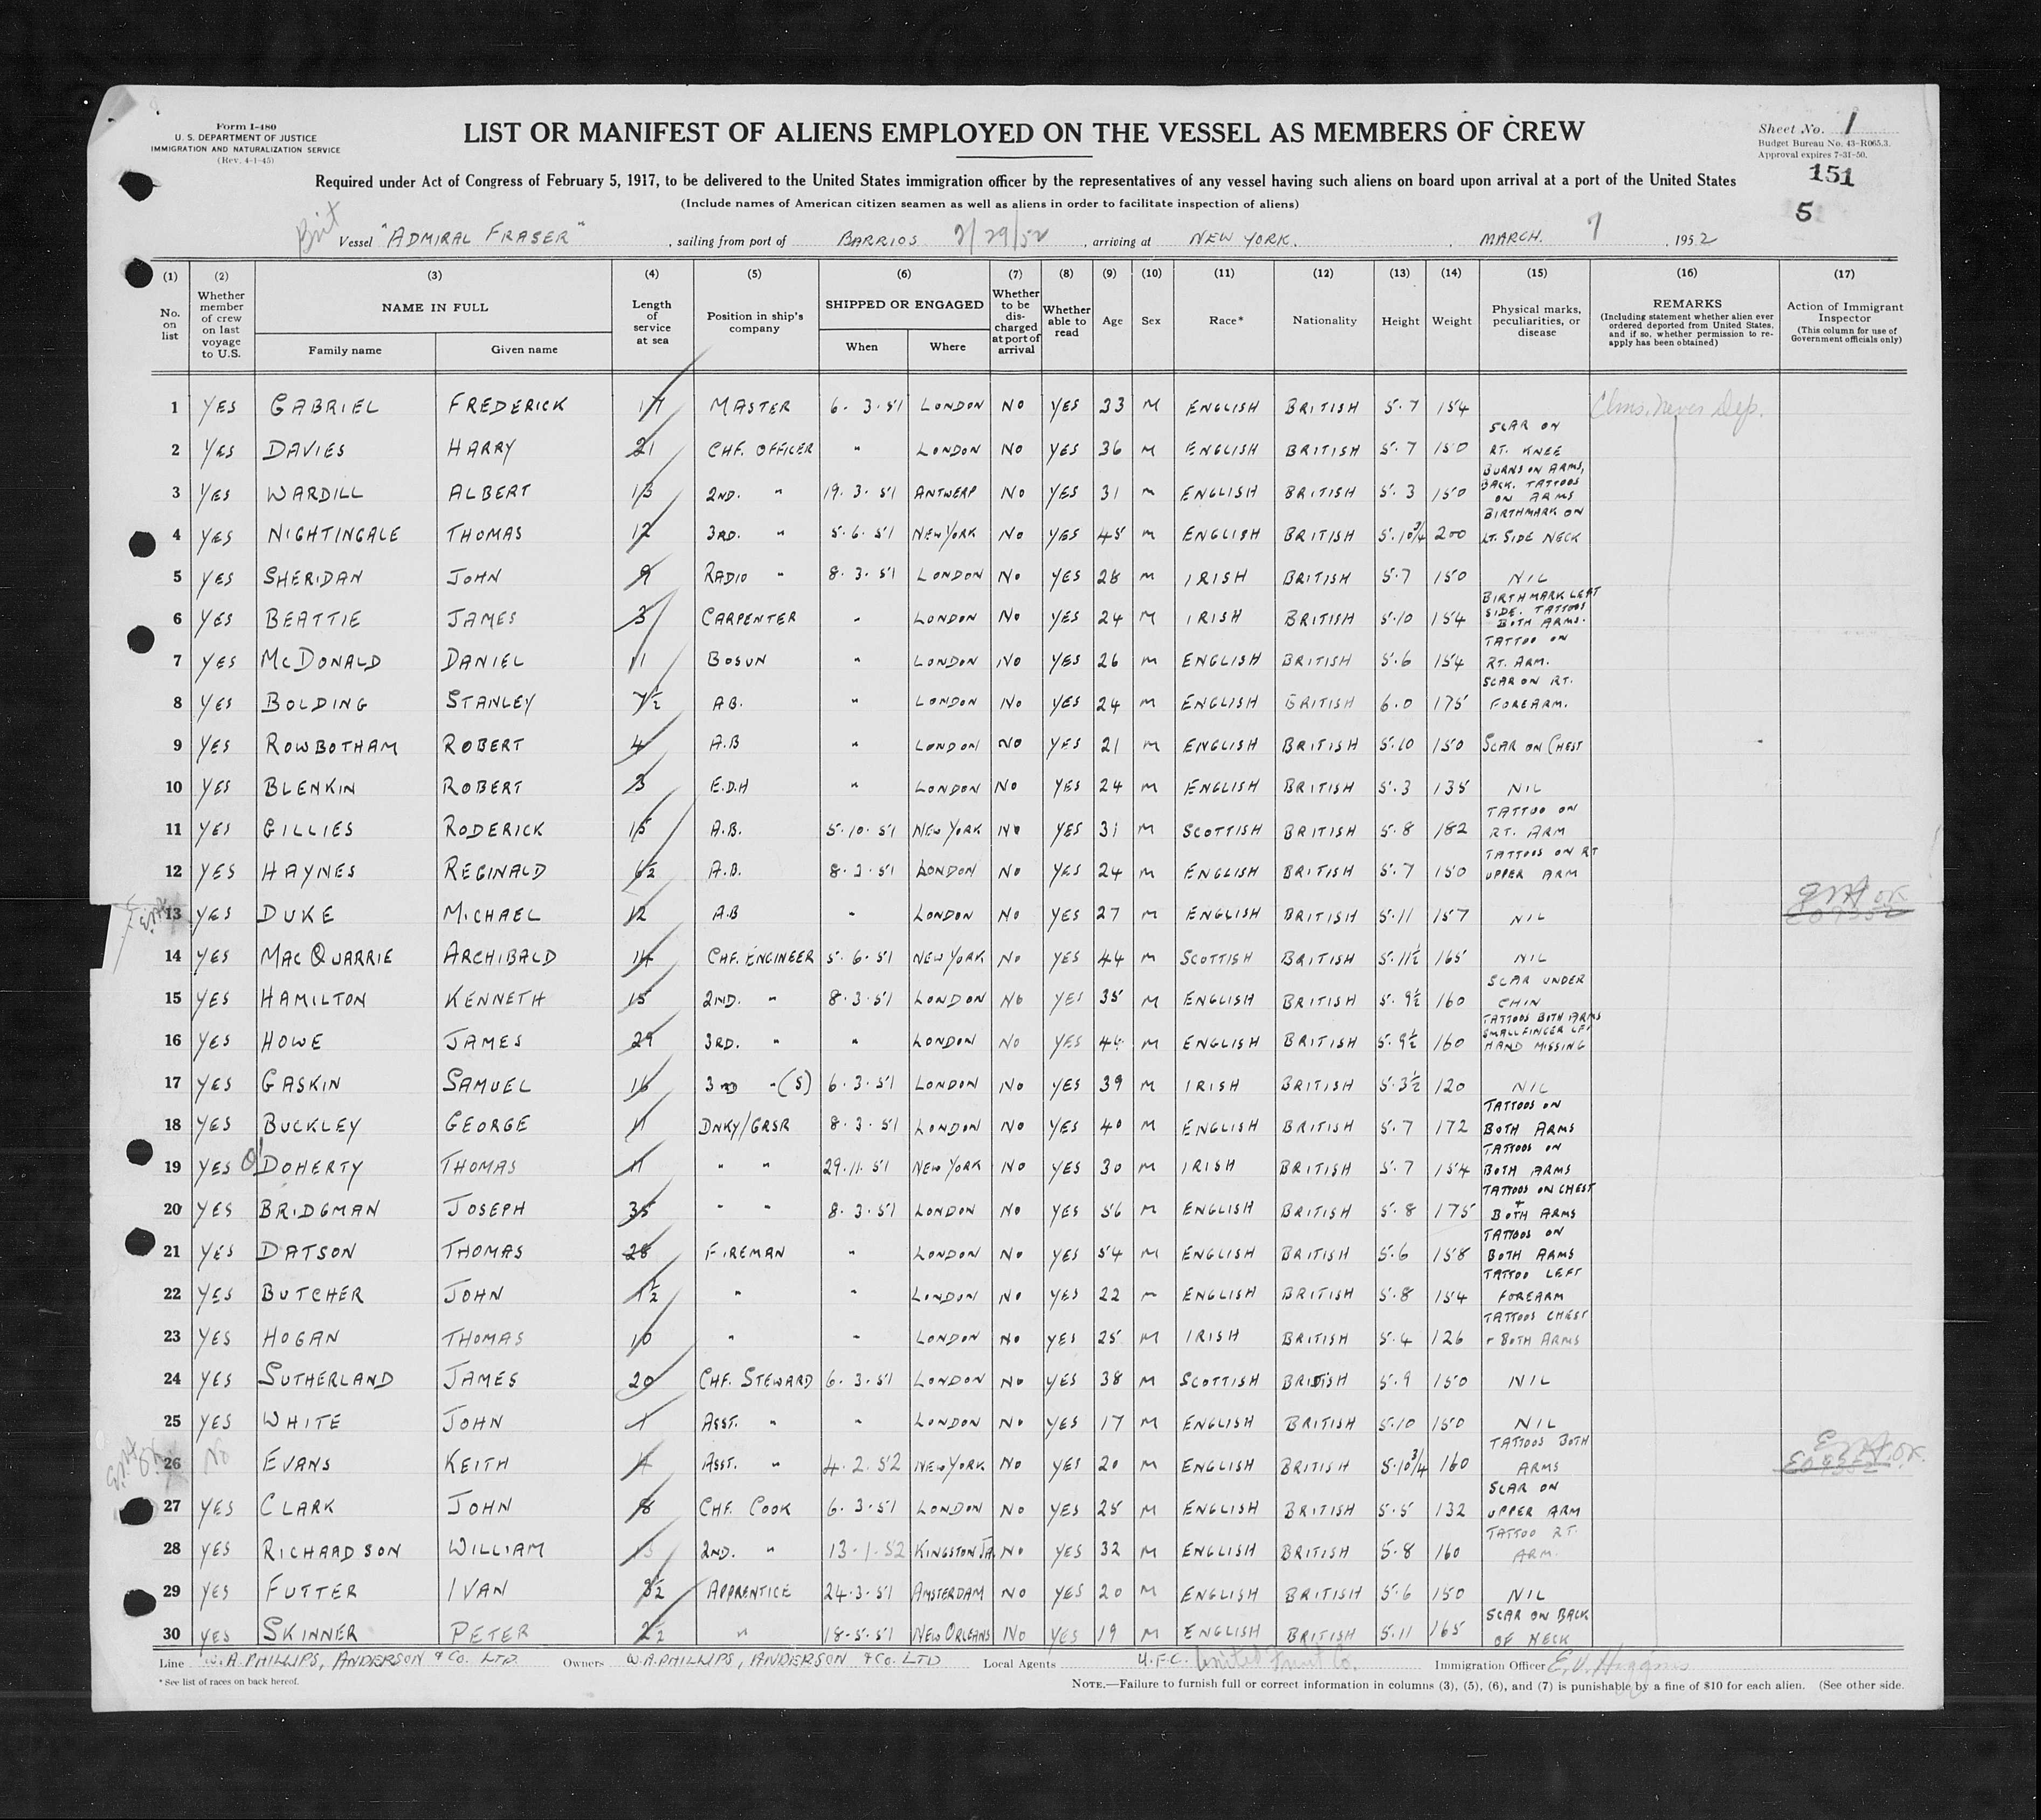 Form I-480
U. S. DEPARTMENT OF JUSTICE
IMMIGRATION AND NATURALIZATION SERVICE
(Rev. 4-1-45)
LIST OR MANIFEST OF ALIENS EMPLOYED ON THE VESSEL AS MEMBERS OF CREW
Sheet No. 1
Budget Bureau No. 43-R065.3.
Approval expires 7-31-50.
151
5
Required under Act of Congress of February 5, 1917, to be delivered to the United States immigration officer by the representatives of any vessel having such aliens on board upon arrival at a port of the United States
(Include names of American citizen seamen as well as aliens in order to facilitate inspection of aliens)
Brit Vessel "ADMIRAL FRASER", sailing from port of BARRIOS 2/29/52, arriving at NEW YORK. , MARCH. 7, 1952
(1) (2) (3) (4) (5) (6) (7) (8) (9) (10) (11) (12) (13) (14) (15) (16) (17)
No. on list Whether member of crew on last voyage to U.S. NAME IN FULL Family name Given name Length of service at sea Position in ship's company SHIPPED OR ENGAGED When Where Whether to be discharged at port of arrival Whether able to read Age Sex Race* Nationality Height Weight Physical marks, peculiarities, or disease REMARKS (Including statement whether alien ever ordered deported from United States, and if so, whether permission to re-apply has been obtained) Action of Immigrant Inspector (This column for use of Government officials only)
1 YES GABRIEL FREDERICK 17 MASTER 6. 3. 51 LONDON NO YES 33 M ENGLISH BRITISH 5.7 154 Clms. never Dep.
2 YES DAVIES HARRY 21 CHF. OFFICER " LONDON NO YES 36 M ENGLISH BRITISH 5.7 150 SCAR ON RT. KNEE
3 YES WARDILL ALBERT 13 2ND. " 19. 3. 51 ANTWERP NO YES 31 M ENGLISH BRITISH 5.3 150 BURNS ON ARMS, BACK. TATTOOS ON ARMS
4 YES NIGHTINGALE THOMAS 12 3RD. " 5.6.51 NEW YORK NO YES 45 M ENGLISH BRITISH 5.10 3/4 200 BIRTHMARK ON LT. SIDE NECK
5 YES SHERIDAN JOHN 9 RADIO " 8.3.51 LONDON NO YES 28 M IRISH BRITISH 5.7 150 NIL
6 YES BEATTIE JAMES 3 CARPENTER " LONDON NO YES 24 M IRISH BRITISH 5.10 154 BIRTHMARK LEFT SIDE. TATTOOS BOTH ARMS.
7 YES McDONALD DANIEL 11 BOSUN " LONDON NO YES 26 M ENGLISH BRITISH 5.6 154 TATTOO ON RT. ARM.
8 YES BOLDING STANLEY 7½ AB. " LONDON NO YES 24 M ENGLISH BRITISH 6.0 175 SCAR ON RT. FOREARM.
9 YES ROWBOTHAM ROBERT 4 A.B " LONDON NO YES 21 M ENGLISH BRITISH 5.10 150 SCAR ON CHEST
10 YES BLENKIN ROBERT 3 E.D.H " LONDON NO YES 24 M ENGLISH BRITISH 5.3 135 NIL
11 YES GILLIES RODERICK 15 A.B. 5.10.51 NEW YORK NO YES 31 M SCOTTISH BRITISH 5.8 182 TATTOO ON RT. ARM
12 YES HAYNES REGINALD 6½ A.B. 8.3.51 LONDON NO YES 24 M ENGLISH BRITISH 5.7 150 TATTOOS ON RT UPPER ARM
13 YES DUKE MICHAEL 12 A.B " LONDON NO YES 27 M ENGLISH BRITISH 5.11 157 NIL
14 YES MACQUARRIE ARCHIBALD 14 CHF. ENGINEER 5.6.51 NEW YORK NO YES 44 M SCOTTISH BRITISH 5.11½ 165 NIL
15 YES HAMILTON KENNETH 15 2ND. " 8.3.51 LONDON NO YES 35 M ENGLISH BRITISH 5.9½ 160 SCAR UNDER CHIN
16 YES HOWE JAMES 29 3RD. " " LONDON NO YES 44 M ENGLISH BRITISH 5.9½ 160 TATTOOS BOTH ARMS SMALL FINGER LFT HAND MISSING
17 YES GASKIN SAMUEL 16 3RD "(S) 6.3.51 LONDON NO YES 39 M IRISH BRITISH 5.3½ 120 NIL
18 YES BUCKLEY GEORGE 11 DNKY/GRSR 8.3.51 LONDON NO YES 40 M ENGLISH BRITISH 5.7 172 TATTOOS ON BOTH ARMS
19 YES O' DOHERTY THOMAS 11 " " 29.11.51 NEW YORK NO YES 30 M IRISH BRITISH 5.7 154 TATTOOS ON BOTH ARMS
20 YES BRIDGMAN JOSEPH 35 " " 8.3.51 LONDON NO YES 56 M ENGLISH BRITISH 5.8 175 TATTOOS ON CHEST + BOTH ARMS
21 YES DATSON THOMAS 28 FIREMAN " LONDON NO YES 54 M ENGLISH BRITISH 5.6 158 TATTOOS ON BOTH ARMS
22 YES BUTCHER JOHN 1½ " " LONDON NO YES 22 M ENGLISH BRITISH 5.8 154 TATTOO LEFT FOREARM
23 YES HOGAN THOMAS 10 " " LONDON NO YES 25 M IRISH BRITISH 5.4 126 TATTOOS CHEST + BOTH ARMS
24 YES SUTHERLAND JAMES 20 CHF. STEWARD 6.3.51 LONDON NO YES 38 M SCOTTISH BRITISH 5.9 150 NIL
25 YES WHITE JOHN 1 ASST. " " LONDON NO YES 17 M ENGLISH BRITISH 5.10 150 NIL
26 No EVANS KEITH 4 ASST. " 4.2.52 NEW YORK NO YES 20 M ENGLISH BRITISH 5.10 3/4 160 TATTOOS BOTH ARMS
27 YES CLARK JOHN 8 CHF. COOK 6.3.51 LONDON NO YES 25 M ENGLISH BRITISH 5.5 132 SCAR ON UPPER ARM
28 YES RICHARDSON WILLIAM 2ND. " 13-1-52 KINGSTON JA. NO YES 32 M ENGLISH BRITISH 5.8 160 TATTOO RT. ARM.
29 YES FUTTER IVAN 3½ APPRENTICE 24.3.51 AMSTERDAM NO YES 20 M ENGLISH BRITISH 5.6 150 NIL
30 YES SKINNER PETER 2½ " 18-5-51 NEW ORLEANS NO YES 19 M ENGLISH BRITISH 5.11 165 SCAR ON BACK OF NECK
Line W.A. PHILLIPS, ANDERSON & CO. LTD Owners W.A. PHILLIPS, ANDERSON & CO. LTD Local Agents U.F.C. United Fruit Co. Immigration Officer E.V. Higgins
* See list of races on back hereof.
NOTE.—Failure to furnish full or correct information in columns (3), (5), (6), and (7) is punishable by a fine of $10 for each alien. (See other side.